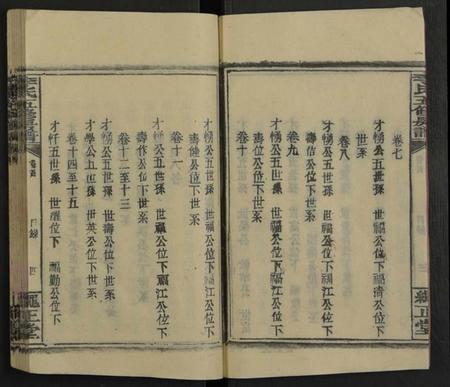 卷七
才榜公五世孫 世福公位下福濟公位下
世系
卷八
才榜公五世孫 世福公位下福江公位下
壽信公位下世系
卷九
才榜公五世孫 世福公位下福江公位下
壽位公位下世系
卷十
才榜公五世孫 世福公位下福江公位下
壽健公位下世系
卷十一
才榜公五世孫 世福公位下福江公位下
壽作公位下世系
卷十二至十三
才榜公五世孫 世壽公位下世系
才學公五世孫 世英公位下世系
卷十四至十五
才忏五世孫 世儺位下 福勤公位下
卷首 目錄 四
繩正堂
李氏五修族譜
三
繩正堂